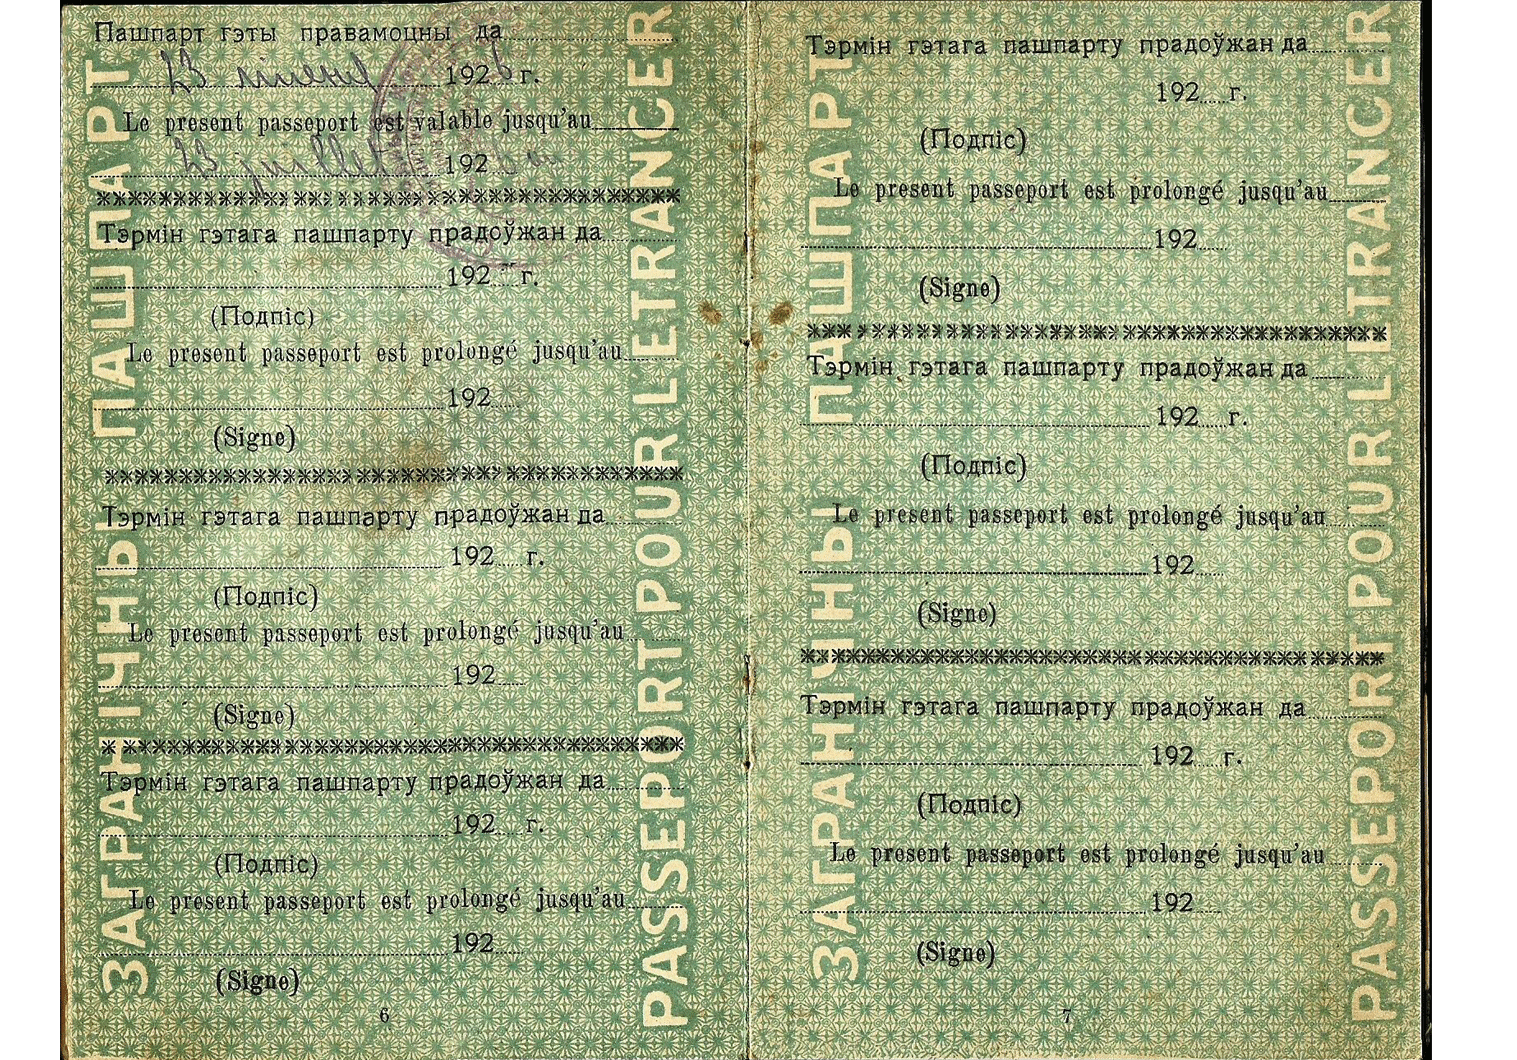 Пашпарт гэты правамоцны да
23 ліпеня 1926 г.
Le present passeport est valable jusqu'au
23 juillet 192
Тэрмін гэтага пашпарту прадоўжан да
192 г.
(Подпіс)
Le present passeport est prolongé jusqu'au
192
(Signe)
Тэрмін гэтага пашпарту прадоўжан да
192 г.
(Подпіс)
Le present passeport est prolongé jusqu'au
192
(Signe)
Тэрмін гэтага пашпарту прадоўжан да
192 г.
(Подпіс)
Le present passeport est prolongé jusqu'au
192
(Signe)
6
ЗАГРАНІЧНЫ ПАШПАРТ
PASSEPORT POUR LETRANCER
Тэрмін гэтага пашпарту прадоўжан да
192 г.
(Подпіс)
Le present passeport est prolongé jusqu'au
192
(Signe)
Тэрмін гэтага пашпарту прадоўжан да
192 г.
(Подпіс)
Le present passeport est prolongé jusqu'au
192
(Signe)
Тэрмін гэтага пашпарту прадоўжан да
192 г.
(Подпіс)
Le present passeport est prolongé jusqu'au
192
(Signe)
7
ЗАГРАНІЧНЫ ПАШПАРТ
PASSEPORT POUR LETRANCER